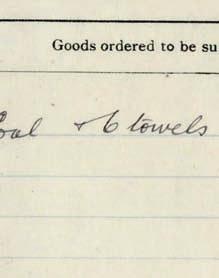 Goods ordered to be su
oal + 6 towels